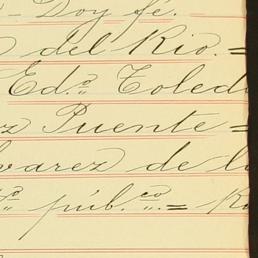 - Doy fé.
del Rio. =
Ed.º Toled
z Puente =
varez de l
púb.co =